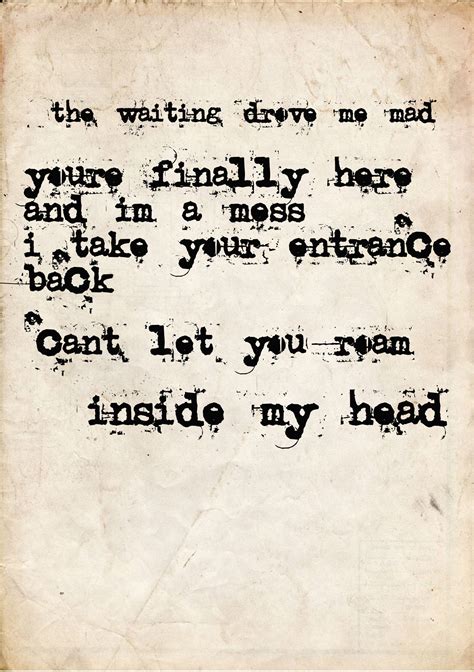 the waiting drove me mad
youre finally here
and im a mess
i take your entranCe
baCk
Cant let you roam
inside my head